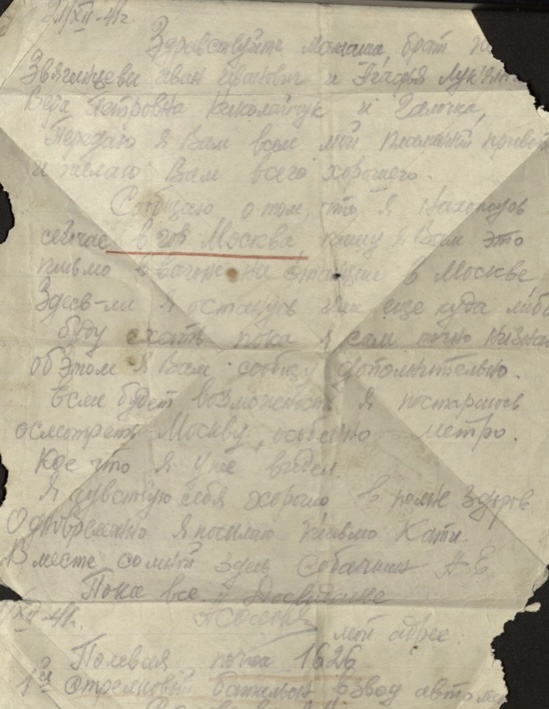 21/XII-41г.
Здравствуйте мамаша брат и
Звягинцеви Иван Иванович и Агафья Лук
Вера Петровна Николайчук и Галочка,
Передаю я Вам всем мой пламений привет
и желаю Вам всего хорошего.
Сообщаю о том, что я нахожусь
сейчас в гор Москва, пишу я Вам это
письмо в вагоне на станции в Москве
Здесь-ли я останусь или еще куда либо
буду ехать пока я сам точно незнаю
об этом я Вам сообщу дополнительно.
если будет возможность я постараюсь
осмотреть Москву, особенно метро.
Кое что я уже видел.
Я чувствую себя хорошо вполне здоров
Одновременно я посылаю письмо Кати.
Вместе со мной здесь Собачкин
Пока все. Досвидание
/XII-41г.
мой адрес:
Полевая почта 1626
1й Стрелковый батальон взвод автома